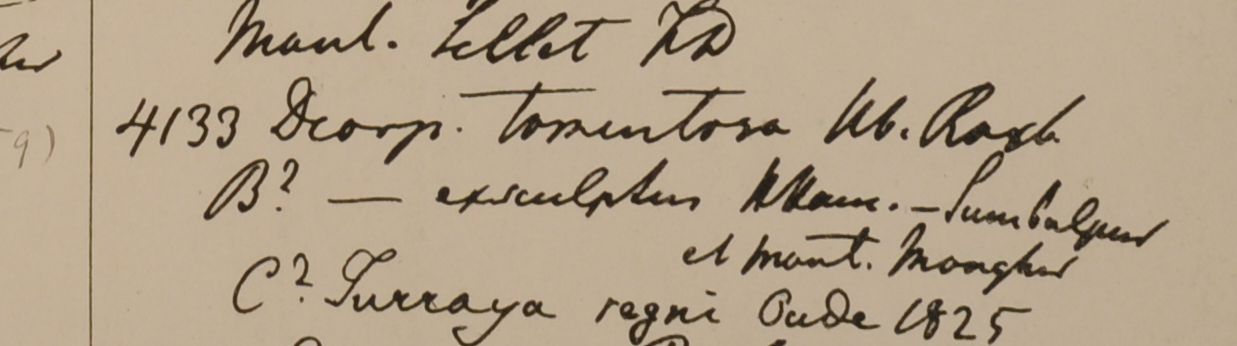 Mont. Sillet FD
4133 Diosp. tomentosa Hb. Roxb
B? — exsculptus HHam. — Sumbulpur
et mont. Monghir
C? Turraya regni Oude 1825
9)